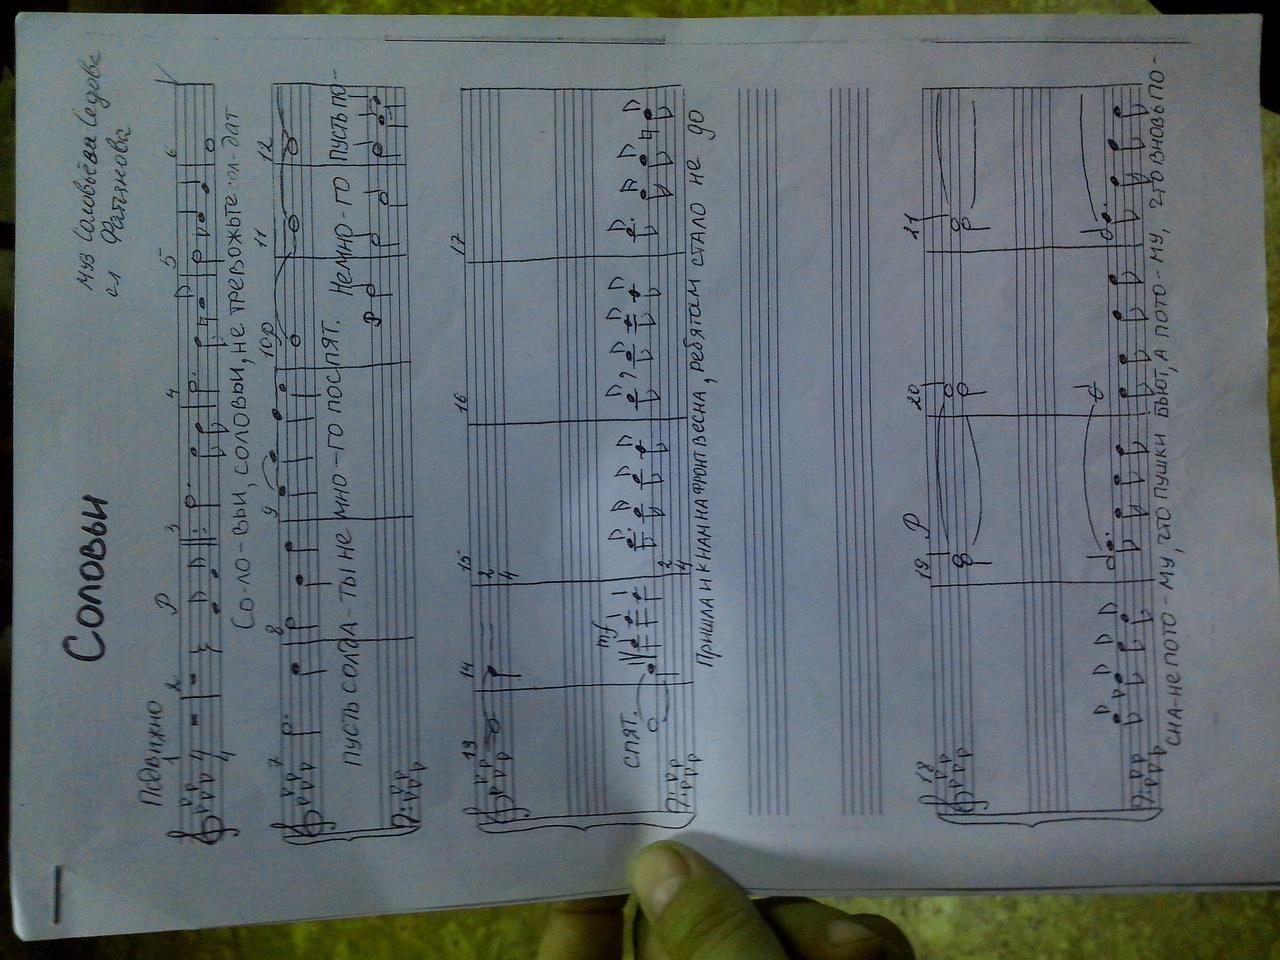 Соловьи
муз Соловьёва-Седова
сл Фатьянова
Подвижно
1 2 P 3 4 5 6
4 4
Со-ло-вьи, соловьи, не тревожьте сол-дат
7 8 9 10 P 11 12
пусть солда-ты не мно-го поспят. Немно-го пусть по-
P
13 14 15 16 17
2 4
mf
спят. Пришла и к нам на фронт весна, ребятам стало не до
2 4
18 19 P 20 21
сна-не пото-му, что пушки бьют, а пото-му, что вновь по-